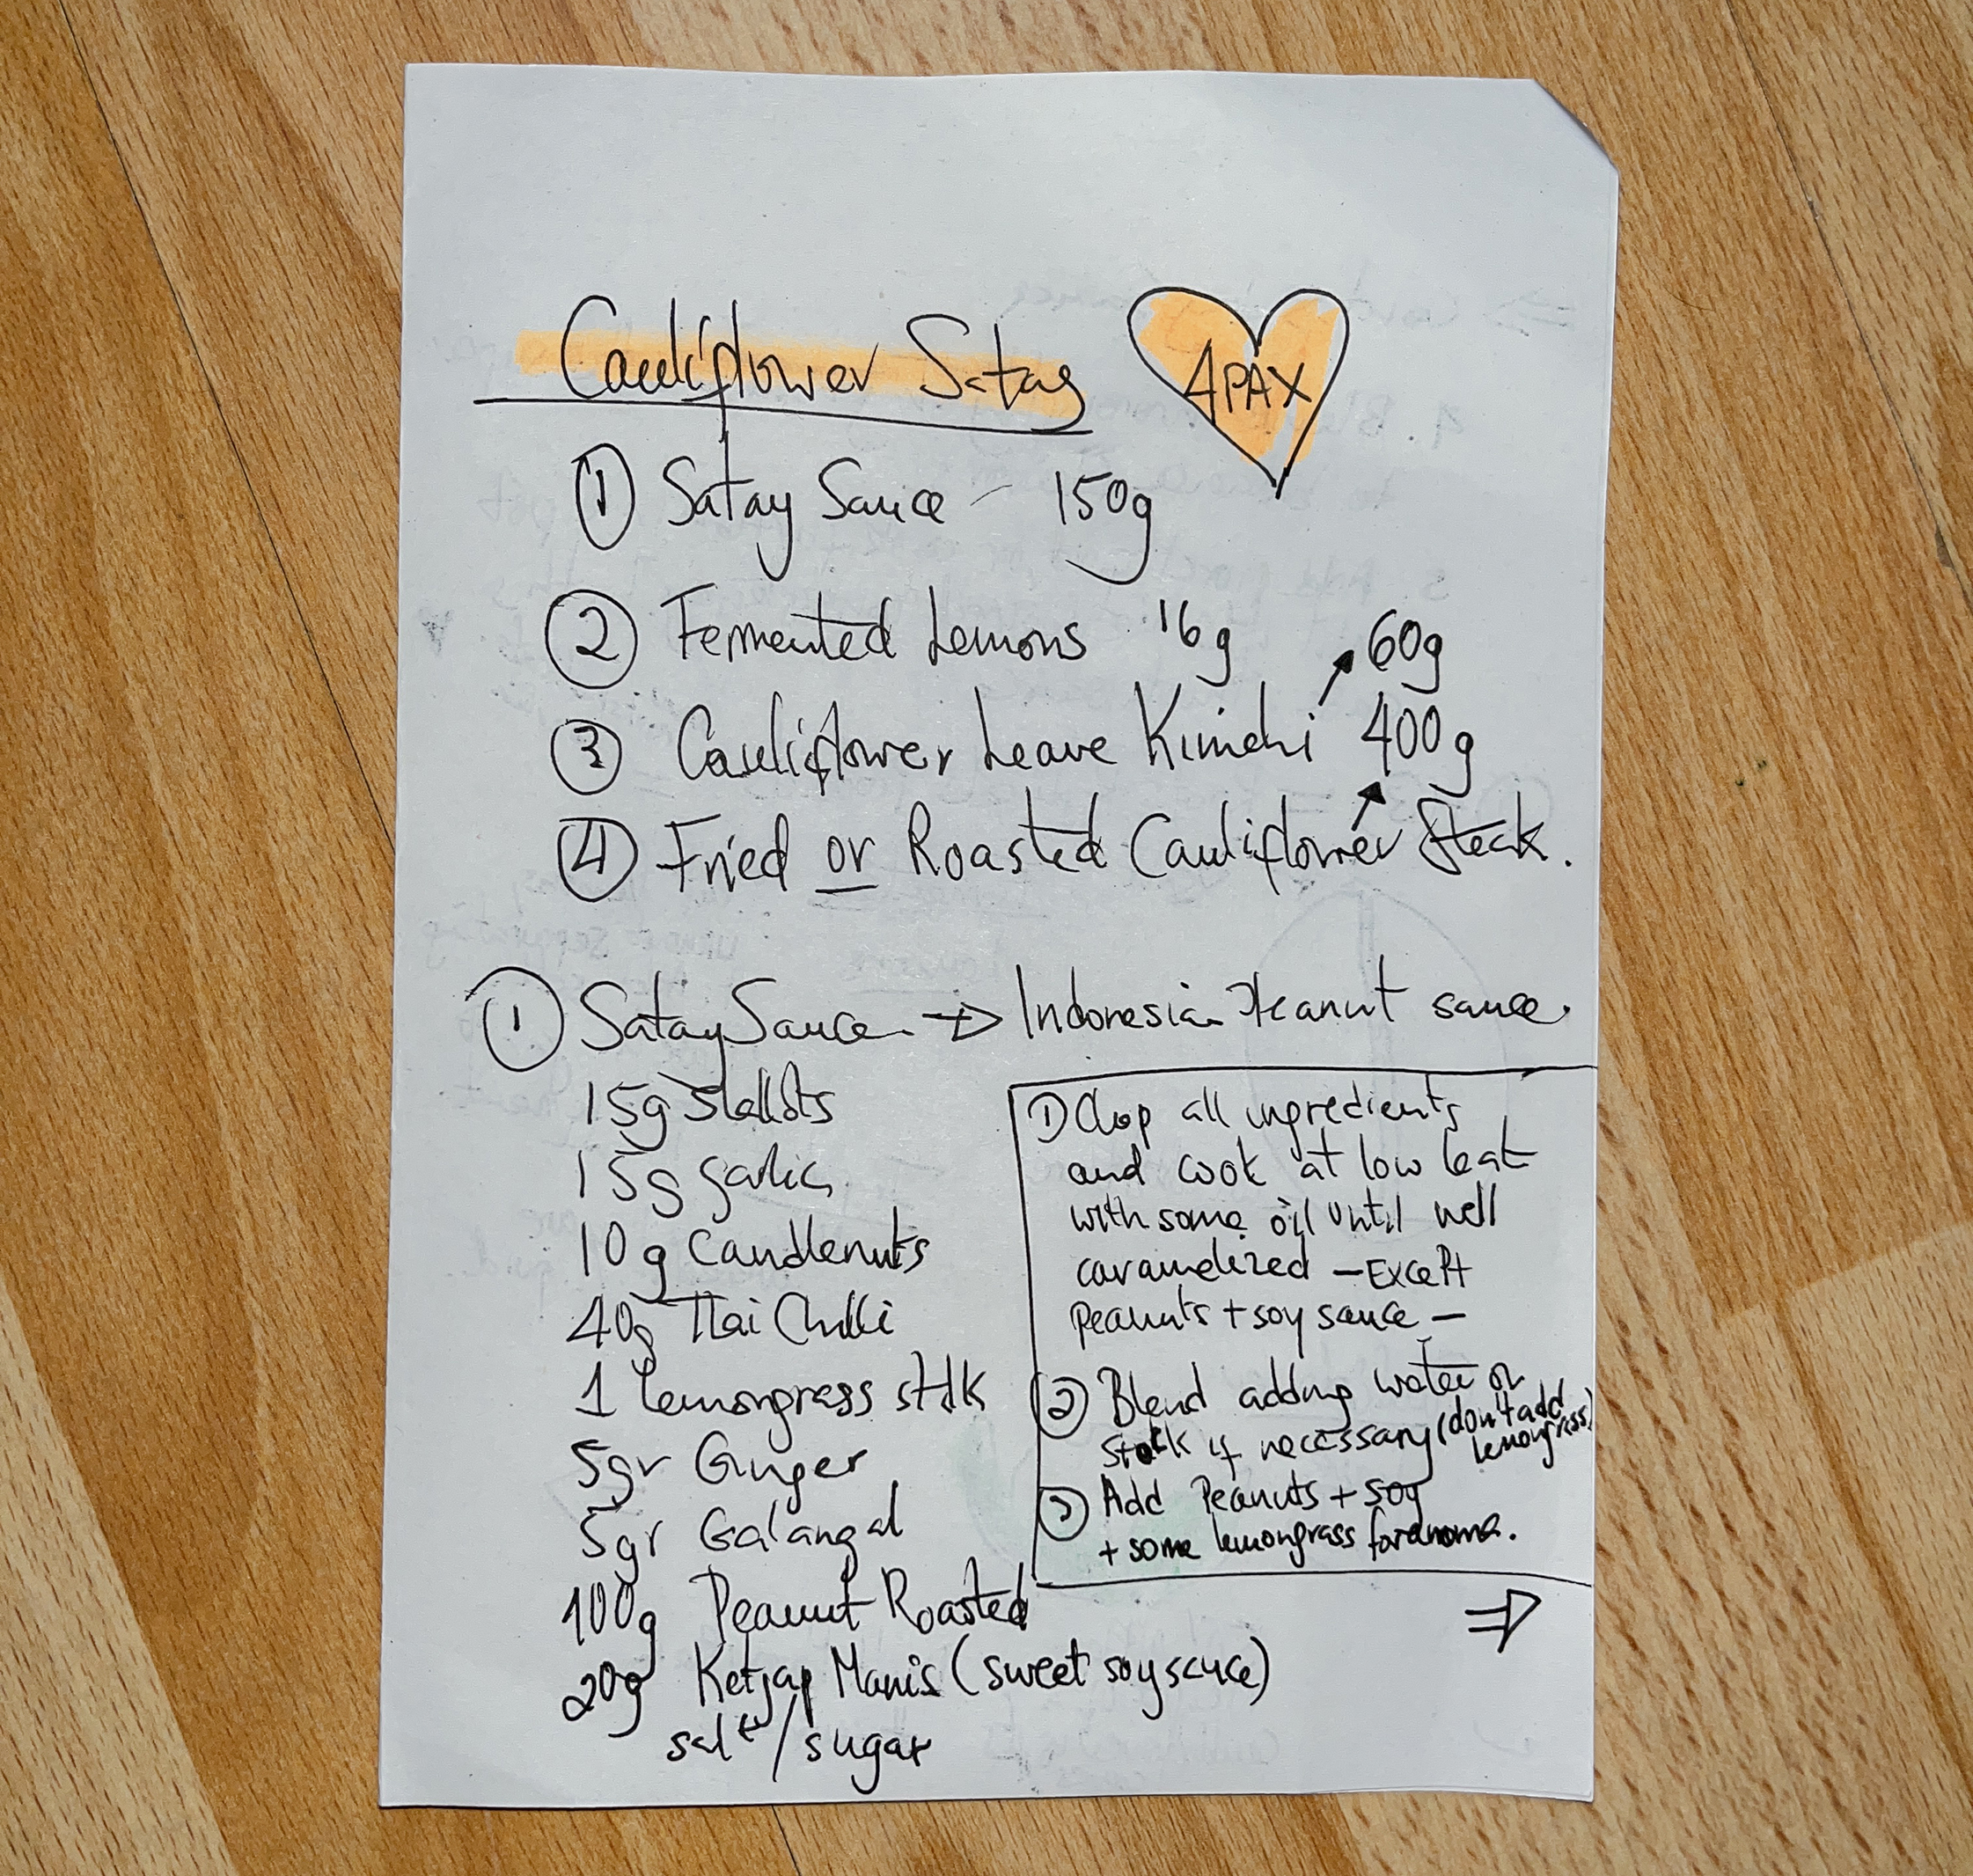 Cauliflower Satay
4PAX
① Satay Sauce - 150g
② Fermented Lemons 16g
60g
③ Cauliflower Leave Kimchi 400g
④ Fried or Roasted Cauliflower Steak.
① Satay Sauce. → Indonesia Peanut sauce.
15g Shallots
15g garlic
10g Candlenuts
40g Thai Chilli
1 lemongrass stalk
5gr Ginger
5gr Galangal
100g Peanut Roasted
20g Ketjap Manis (sweet soy sauce)
salt / sugar
① Chop all ingredients
and cook at low heat
with some oil until well
caramelized - Except
Peanuts + soy sauce -
② Blend adding water or
stock if necessary (don't add
lemongrass)
③ Add Peanuts + soy
+ some lemongrass for aroma.
⇒